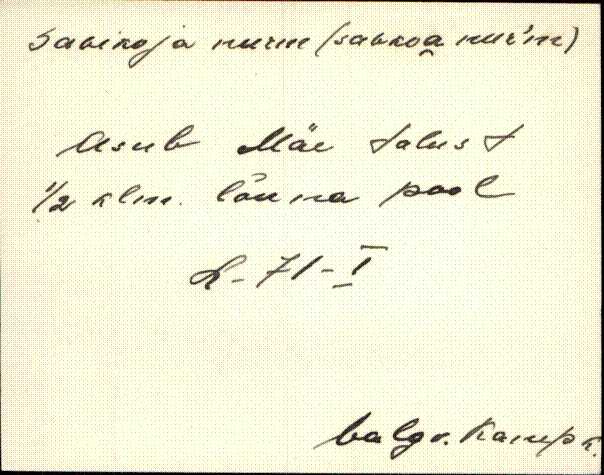 Savikoja nurm (savkoa nur'm)
Asub Mäe talust
1/2 klm. lõuna pool
L-71-I
Valgv. Kamp k.